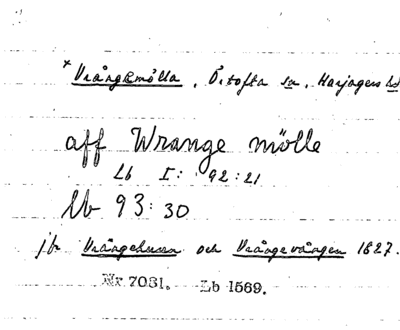 x Vrångamölla, Örtofta sn, Harjagers hd
aff Wrange mölle
Lb I: 92:21
lb 93:30
jbr Vrångehusen och Vrångevången 1827.
Nr 7081. Lb 1569.